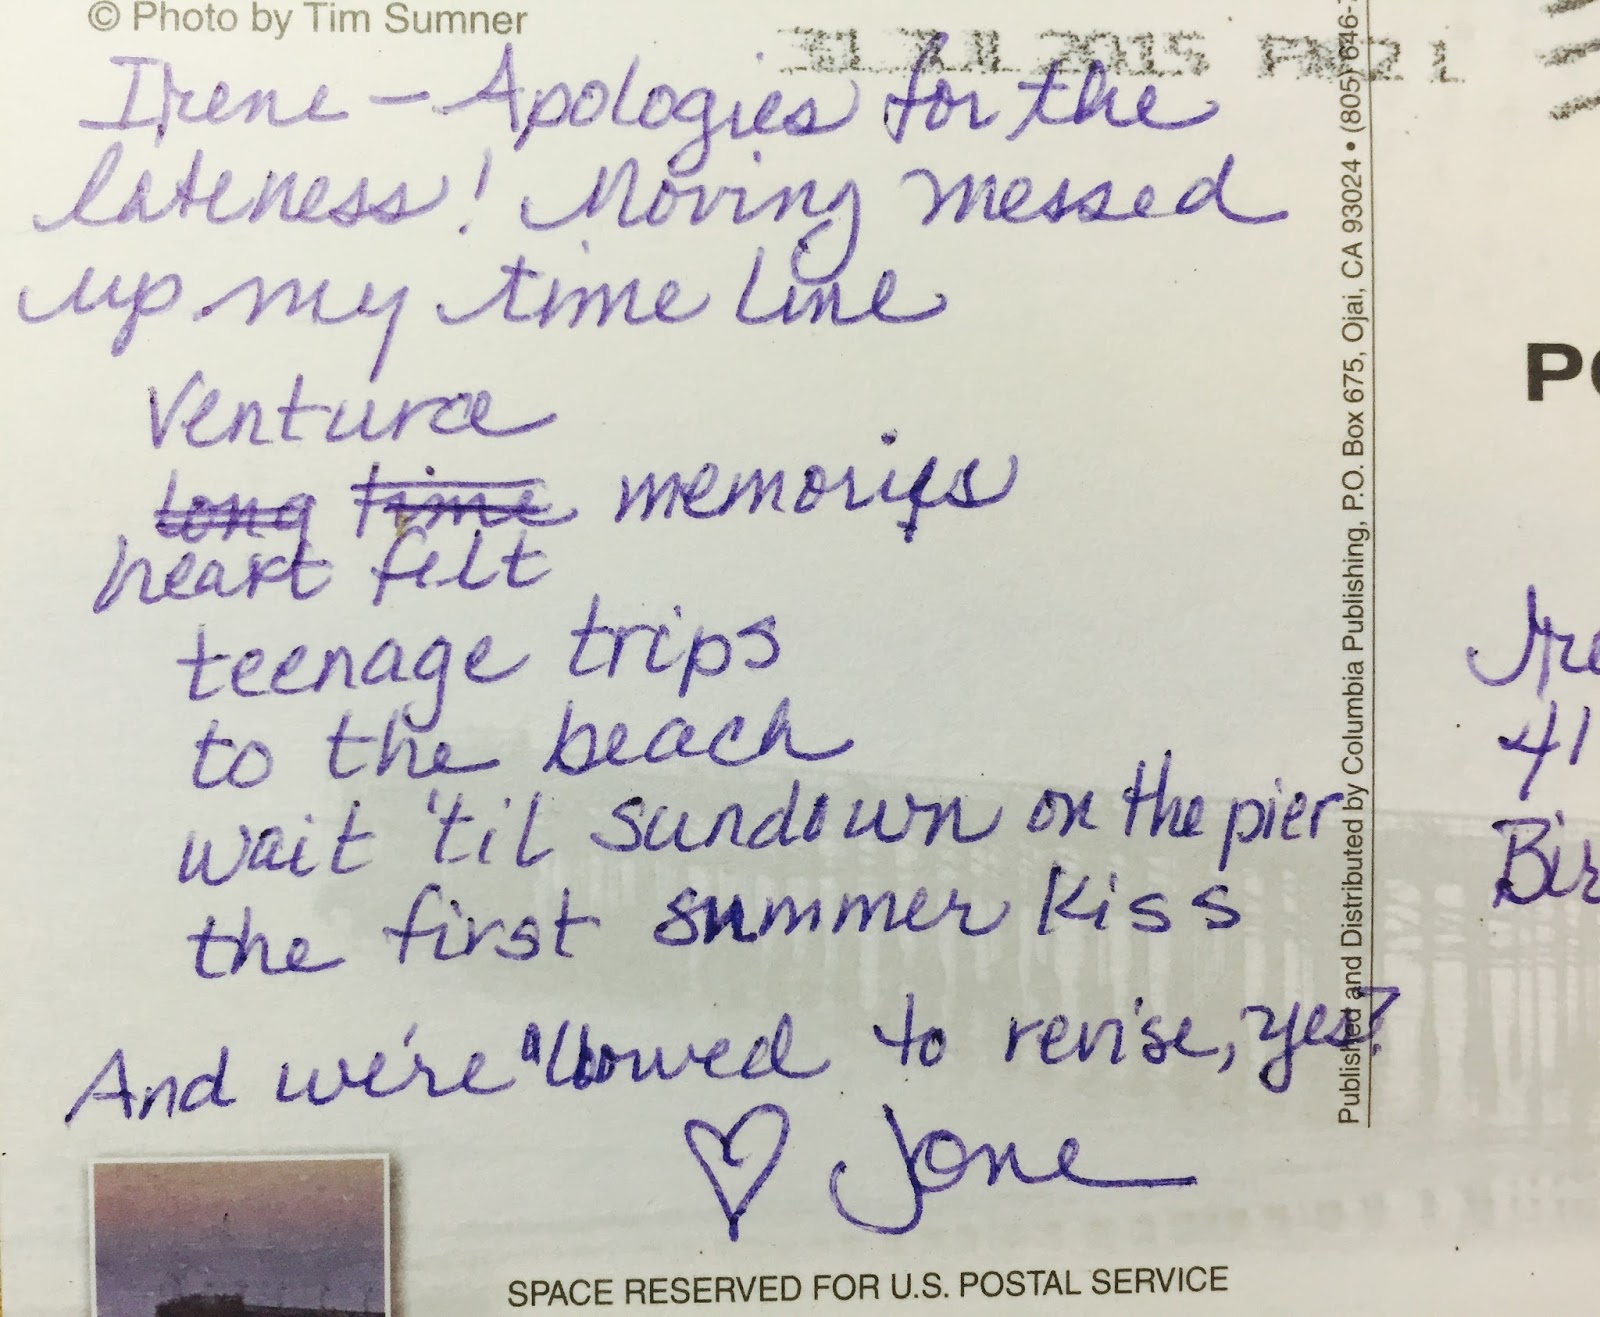 © Photo by Tim Sumner
31 JUL 2015 PM 2 L
Irene - Apologies for the
lateness! Moving messed
up my time line
Ventura
long time memories
heart felt
teenage trips
to the beach
wait 'til sundown on the pier
the first summer kiss
And we're allowed to revise, yes?
♡ Jone
SPACE RESERVED FOR U.S. POSTAL SERVICE
Published and Distributed by Columbia Publishing, P.O. Box 675, Ojai, CA 93024 • (805) 646-
PO
Ire
41
Bir